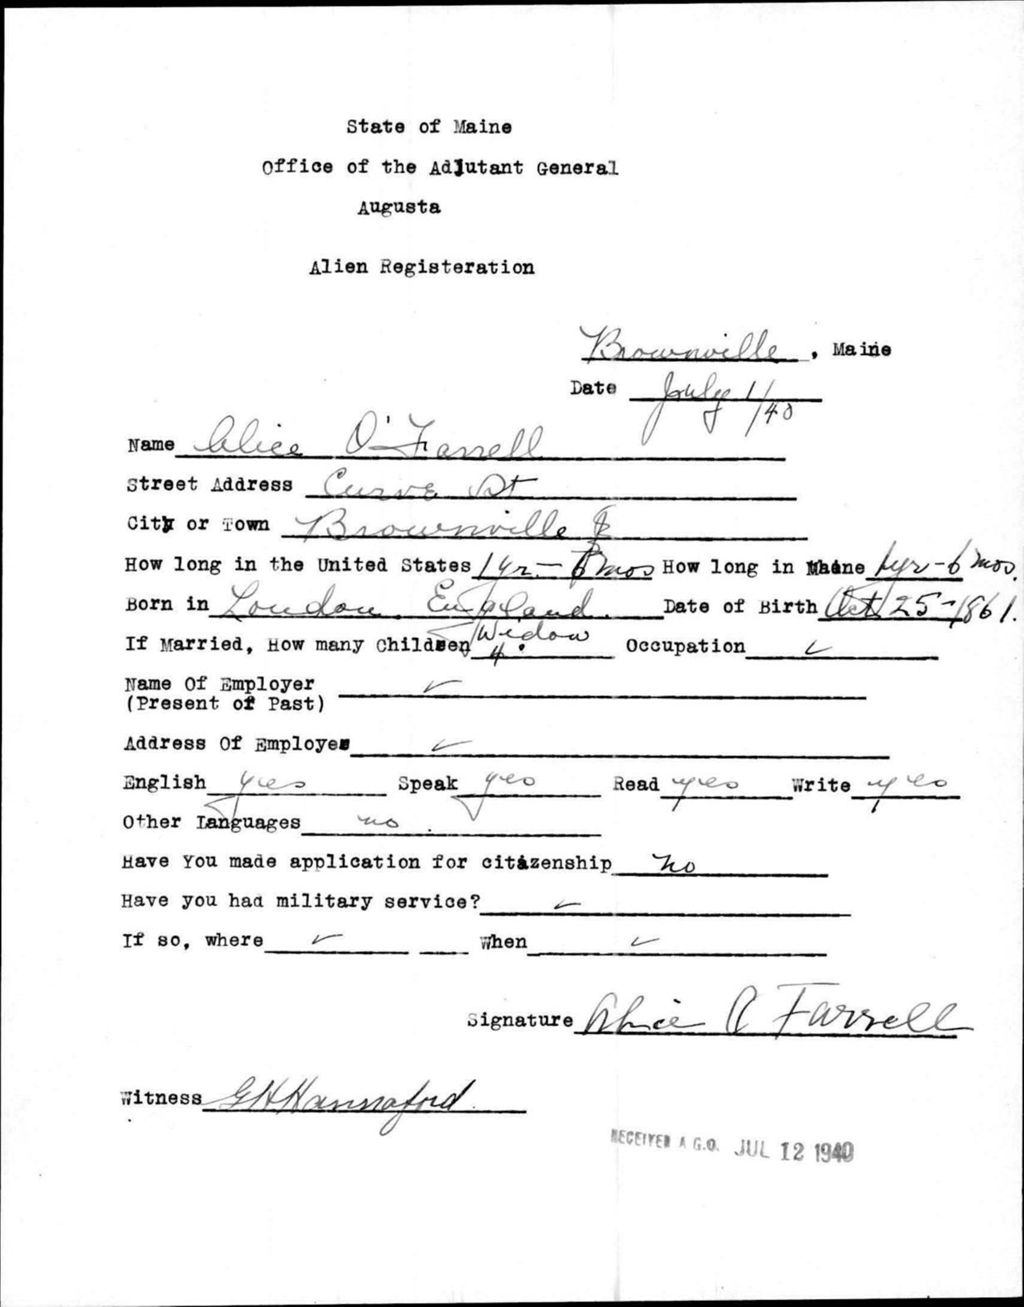 State of Maine
Office of the Adjutant General
Augusta
Alien Registeration
Brownville, Maine
Date July 1/40
Name Alice O'Farrell
Street Address Curve St
City or Town Brownville J
How long in the United States 1 yr - 6 mos How long in Maine 1 yr - 6 mos.
Born in London, England. Date of Birth Oct 25-1861.
If Married, How many Children Widow 4. Occupation ✓
Name Of Employer ✓
(Present of Past)
Address Of Employer ✓
English yes Speak yes Read yes Write yes
Other Languages no.
Have You made application for citizenship no
Have you had military service? ✓
If so, where ✓ When ✓
Signature Alice O Farrell
Witness G H Hannaford
RECEIVED A.G.O. JUL 12 1940